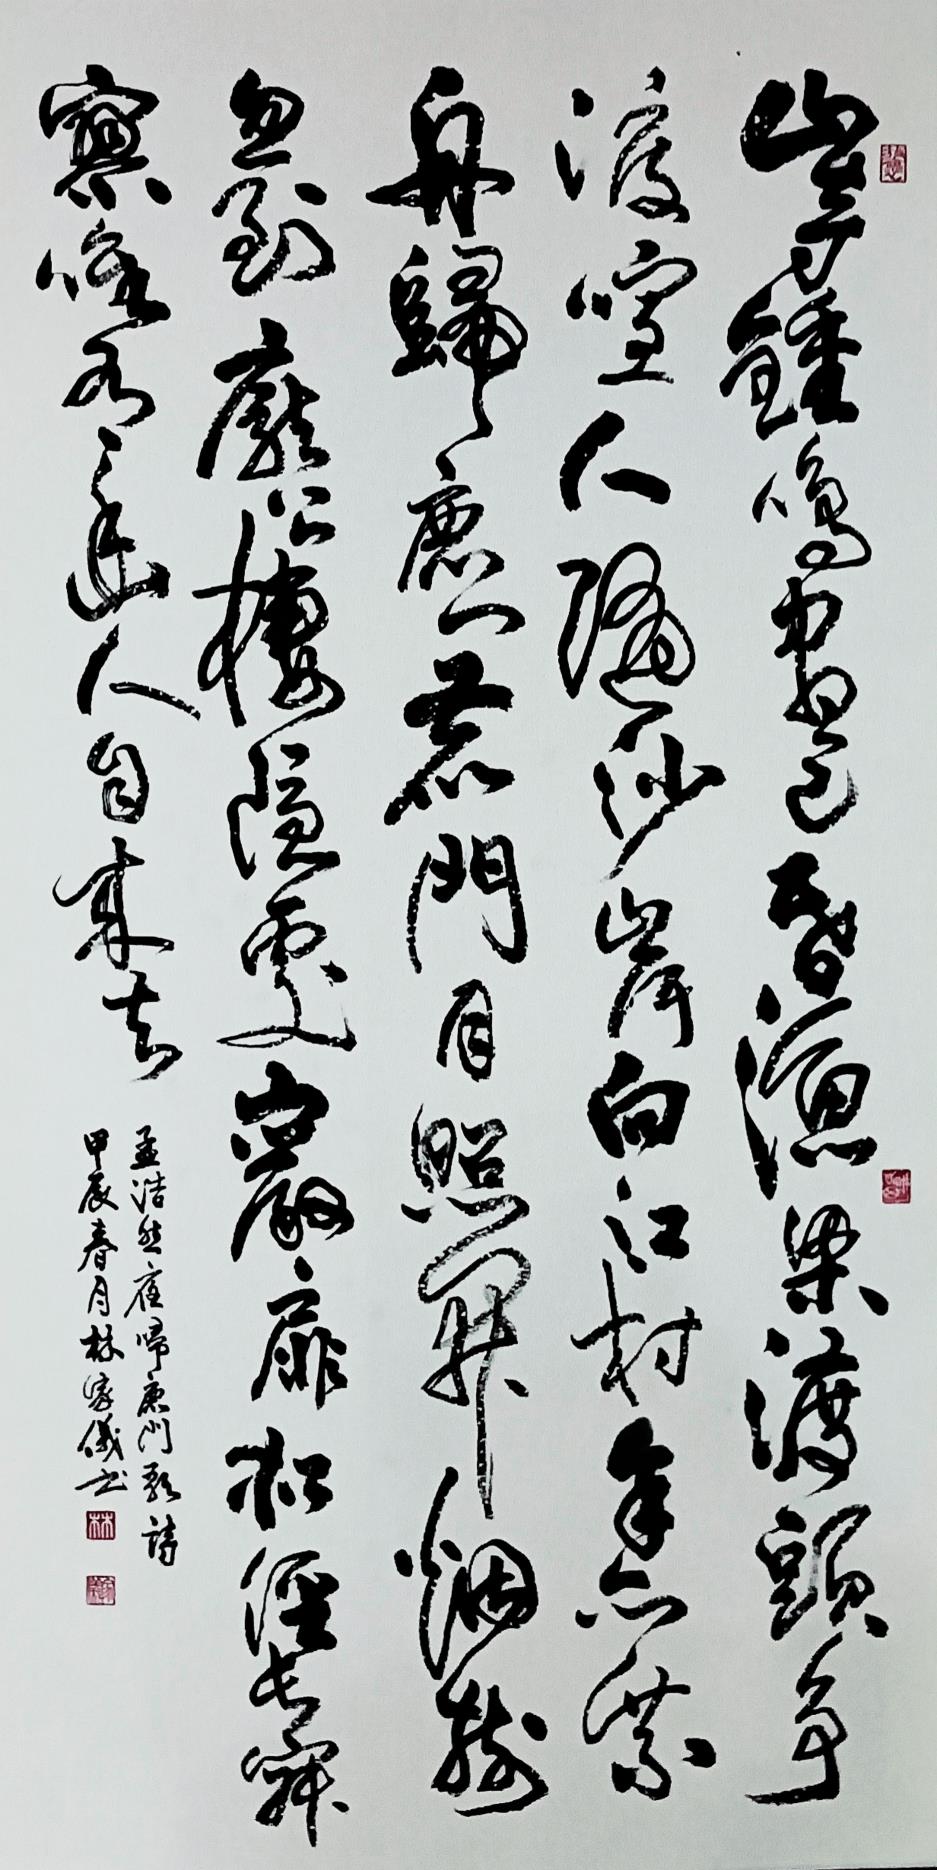 山寺鐘鳴晝已昏漁梁渡頭爭
渡喧人隨沙岸向江村余亦乘
舟歸鹿門鹿門月照開烟樹
忽到龐公棲隱處巖扉松徑長寂
寥惟有幽人自來去
孟浩然夜歸鹿門歌詩
甲辰春月林家儀书
林